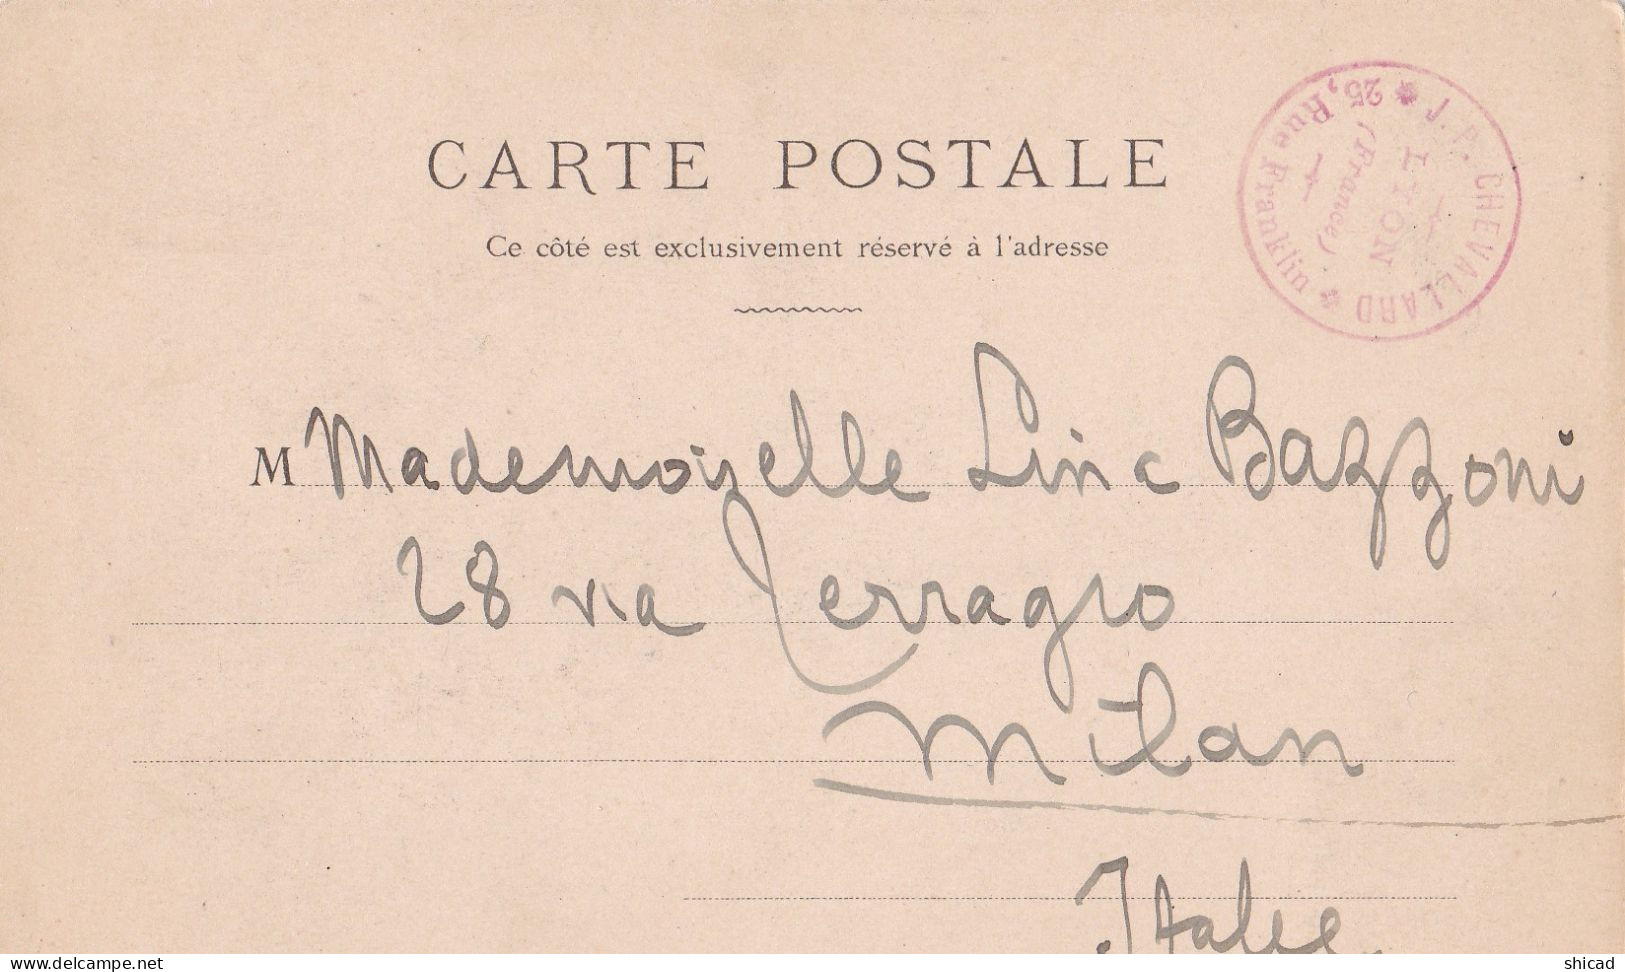 CARTE POSTALE
Ce côté est exclusivement réservé à l'adresse
J. P. CHEVALLARD
25, Rue Franklin
LYON
(France)
M Mademoiselle Line Bazzoni
28 via Terragio
Milan
Italie
delcampe.net
shicad